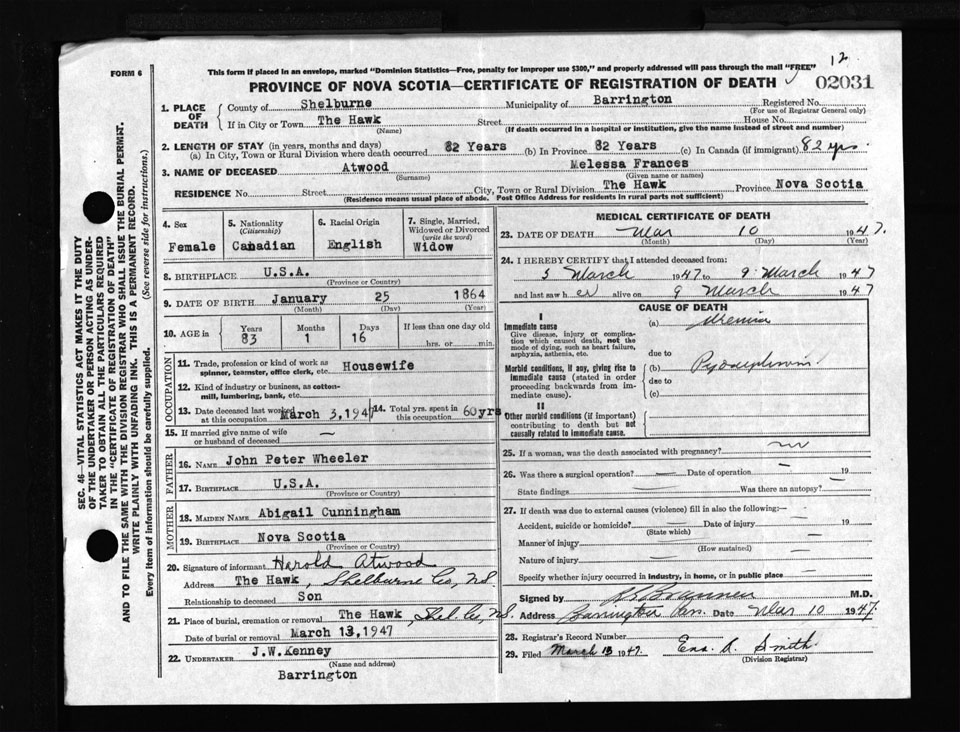 12
FORM 6
This form if placed in an envelope, marked "Dominion Statistics—Free, penalty for improper use $300," and properly addressed will pass through the mail "FREE"
PROVINCE OF NOVA SCOTIA—CERTIFICATE OF REGISTRATION OF DEATH
02031
1. PLACE OF DEATH County of Shelburne Municipality of Barrington Registered No.
(For use of Registrar General only)
If in City or Town The Hawk Street House No.
(Name) (If death occurred in a hospital or institution, give the name instead of street and number)
2. LENGTH OF STAY (in years, months and days)
(a) In City, Town or Rural Division where death occurred 82 Years (b) In Province 82 Years (c) In Canada (if immigrant) 82 yrs
3. NAME OF DECEASED Atwood Melessa Frances
(Surname) (Given name or names)
RESIDENCE No. Street City, Town or Rural Division The Hawk Province Nova Scotia
(Residence means usual place of abode. Post Office Address for residents in rural parts not sufficient)
4. Sex Female
5. Nationality (Citizenship) Canadian
6. Racial Origin English
7. Single, Married, Widowed or Divorced (write the word) Widow
8. BIRTHPLACE U.S.A.
(Province or Country)
9. DATE OF BIRTH January 25 1864
(Month) (Day) (Year)
10. AGE in Years 83 Months 1 Days 16 If less than one day old hrs. or min.
OCCUPATION
11. Trade, profession or kind of work as spinner, teamster, office clerk, etc. Housewife
12. Kind of industry or business, as cotton-mill, lumbering, bank, etc.
13. Date deceased last worked at this occupation March 3, 1947
14. Total yrs. spent in this occupation 60 yrs
15. If married give name of wife or husband of deceased —
FATHER
16. NAME John Peter Wheeler
17. BIRTHPLACE U.S.A.
(Province or Country)
MOTHER
18. MAIDEN NAME Abigail Cunningham
19. BIRTHPLACE Nova Scotia
(Province or Country)
20. Signature of informant Harold Atwood
Address The Hawk, Shelburne Co, N.S.
Relationship to deceased Son
21. Place of burial, cremation or removal The Hawk, Shel. Co, N.S.
Date of burial or removal March 13, 1947
22. UNDERTAKER J.W.Kenney
(Name and address)
Barrington
MEDICAL CERTIFICATE OF DEATH
23. DATE OF DEATH Mar 10 1947.
(Month) (Day) (Year)
24. I HEREBY CERTIFY that I attended deceased from:
3 March 1947 to 9 March 1947
and last saw her alive on 9 March 1947
CAUSE OF DEATH
I
Immediate cause
Give disease, injury or complication which caused death, not the mode of dying, such as heart failure, asphyxia, asthenia, etc.
(a) Uremia
due to
Morbid conditions, if any, giving rise to immediate cause (stated in order proceeding backwards from immediate cause).
(b)
due to
(c)
II
Other morbid conditions (if important) contributing to death but not causally related to immediate cause.
25. If a woman, was the death associated with pregnancy? no
26. Was there a surgical operation? — Date of operation — 19
State findings Was there an autopsy? —
27. If death was due to external causes (violence) fill in also the following:—
Accident, suicide or homicide? — Date of injury — 19
(State which)
Manner of injury —
(How sustained)
Nature of injury —
Specify whether injury occurred in industry, in home, or in public place —
Signed by M.D.
Address Barrington Date Mar 10 1947.
28. Registrar's Record Number
29. Filed March 13 1947. Ena. A. Smith.
(Division Registrar)
SEC. 46—VITAL STATISTICS ACT MAKES IT THE DUTY
OF THE UNDERTAKER OR PERSON ACTING AS UNDER-
TAKER TO OBTAIN ALL THE PARTICULARS REQUIRED
IN THE "CERTIFICATE OF REGISTRATION OF DEATH"
AND TO FILE THE SAME WITH THE DIVISION REGISTRAR WHO SHALL ISSUE THE BURIAL PERMIT.
WRITE PLAINLY WITH UNFADING INK. THIS IS A PERMANENT RECORD.
Every item of information should be carefully supplied. (See reverse side for instructions.)